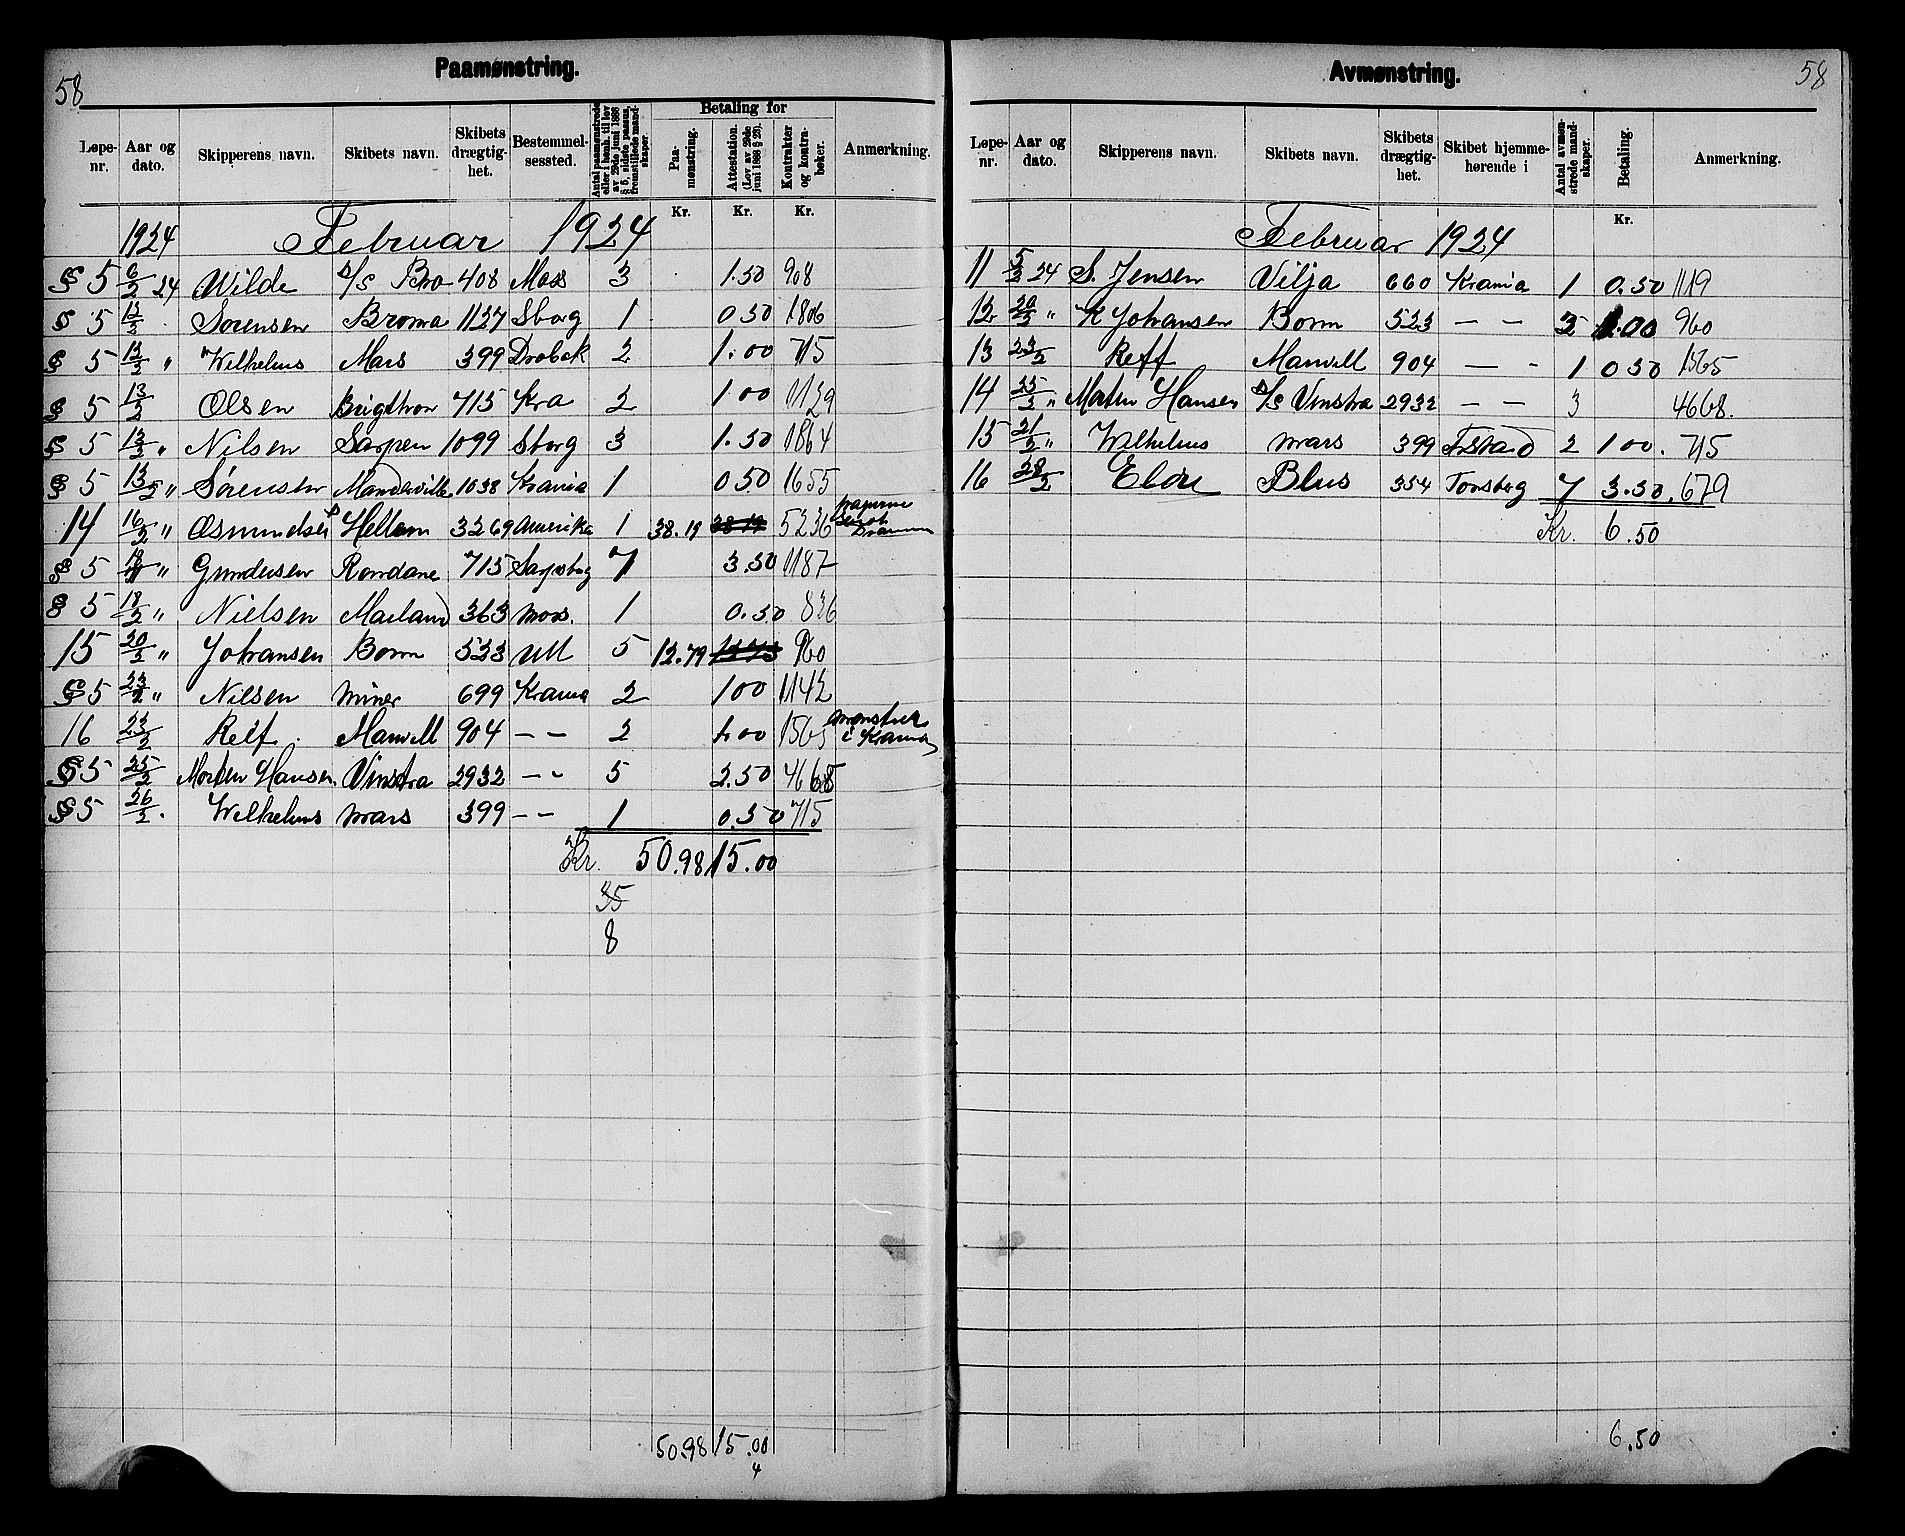 58
Paamønstring.
Løpe-nr. Aar og dato. Skipperens navn. Skibets navn. Skibets drægtig-het. Bestemmel-sessted. Antal paamønstrede eller i henh. til lov av 29de juni 1888 § 5, sidste passus, fremstillede mand-skaper Betaling for Paa-mønstring. Attestation. (Lov av 29de juni 1888 § 23). Kontrakter og kontra-bøker. Anmerkning.
Kr. Kr. Kr.
1924 Februar 1924
§ 5 6/2 24 Wilde s/s Bra 408 Moss 3 1.50 908
§ 5 12/2 Sørensen Broma 1127 Sborg 1 0 50 1806
§ 5 12/2 " Wilhelms Mars 399 Drøbak 2 1.00 715
§ 5 13/2 Olsen 715 Kra 2 1 00 1129
§ 5 13/2 " Nilsen Sarpen 1099 Sborg 3 1.50 1864
§ 5 13/2 " Sørensen Manderville 1038 Krania 1 0 50 1655
14 16/2 " Osmundsen Hellem 3269 Amerika 1 38.19 38 19 5236
§ 5 18/2 " Gundersen Rondane 715 Sarpsbog 7 3.50 1187
§ 5 18/2 " Nielsen Marland 363 Moss. 1 0.50 836
15 20/2 " Johansen Borm 523 Utl 5 12.79 960
§ 5 23/2 " Nilsen Miner 699 Krania 2 1 00 1142
16 23/2 Relf. Manvell 904 – – 2 1.00 1565 mønstret i Krania
§ 5 25/2 Morten Hansen. Vinstra 2932 – – 5 2.50 4668
§ 5 26/2 . Wilhelms Mars 399 – – 1 0.50 715
Kr. 50.98 15.00
35
8
50.98 15.00
4
58
Avmønstring.
Løpe-nr. Aar og dato. Skipperens navn. Skibets navn. Skibets drægtig-het. Skibet hjemme-hørende i Antal avmøn-strede mand-skaper. Betaling. Anmerkning.
Kr.
Februar 1924
11 5/2 24 S. Jensen Vilja 660 Krania 1 0.50 1119
12 20/2 " K Johansen Borm 523 – – 2 1.00 960
13 23/2 Reff Manvell 904 – - 1 0 50 1565
14 25/2 " Morten Hansen s/s Vinstra 2932 – – 3 4668.
15 21/2 " Wilhelms Mars 399 Fstad 2 1 00. 715
16 28/2 Blus 354 Tonsberg 7 3.50. 679
Kr. 6.50
6.50